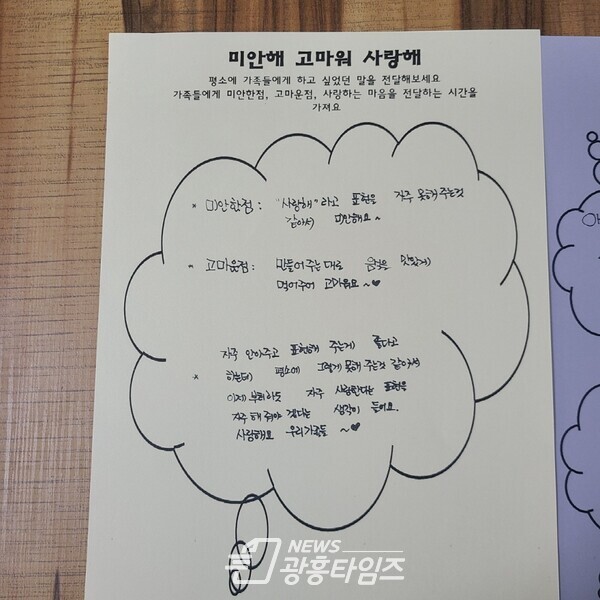 미안해 고마워 사랑해
평소에 가족들에게 하고 싶었던 말을 전달해보세요
가족들에게 미안한점, 고마운점, 사랑하는 마음을 전달하는 시간을
가져요
* 미안한점 : "사랑해"라고 표현을 자주 못해 주는것
같아서 미안해요~
* 고마운점 : 만들어 주는 대로 음식을 맛있게
먹어주어 고마워요 ~♥
자주 안아주고 표현해 주는게 좋다고
하는데 평소에 그렇게 못해 주는것 같아서
* 이제 자주 사랑한다는 표현을
자주 해 줘야 겠다는 생각이 들어요.
사랑해요 우리가족들 ~♥
NEWS
광흥타임즈